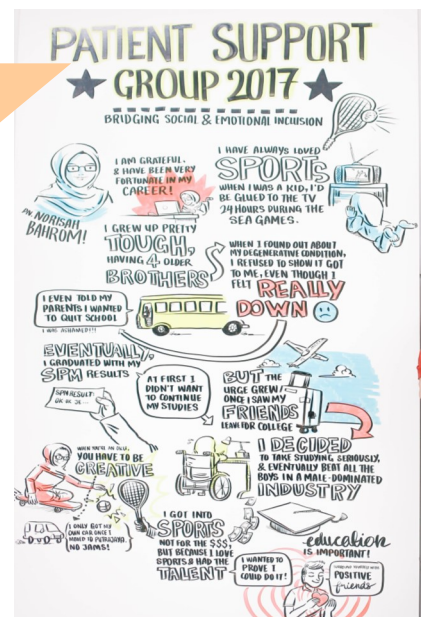 PATIENT SUPPORT
GROUP 2017
BRIDGING SOCIAL & EMOTIONAL INCLUSION
PN. NORISAH
BAHROM!
I AM GRATEFUL,
& HAVE BEEN VERY
FORTUNATE IN MY
CAREER!
I HAVE ALWAYS LOVED
SPORTS
WHEN I WAS A KID, I'D
BE GLUED TO THE TV
24 HOURS DURING THE
SEA GAMES.
I GREW UP PRETTY
TOUGH,
HAVING 4 OLDER
BROTHERS
WHEN I FOUND OUT ABOUT
MY DEGENERATIVE CONDITION,
I REFUSED TO SHOW IT GOT
TO ME, EVEN THOUGH I
FELT REALLY
DOWN
I EVEN TOLD MY
PARENTS I WANTED
TO QUIT SCHOOL
I WAS ASHAMED!!!
EVENTUALLY,
I GRADUATED WITH MY
SPM RESULTS
SPM RESULT:
AT FIRST I
DIDN'T WANT
TO CONTINUE
MY STUDIES
BUT THE
URGE GREW
ONCE I SAW MY
FRIENDS
LEAVE FOR COLLEGE
I DECIDED
TO TAKE STUDYING SERIOUSLY,
& EVENTUALLY BEAT ALL THE
BOYS IN A MALE-DOMINATED
INDUSTRY
YOU HAVE TO BE
CREATIVE
I ONLY GOT MY
OWN CAR ONCE I
MOVED TO PUTRAJAYA.
NO JAMS!
I GOT INTO
SPORTS
NOT FOR THE $$$,
BUT BECAUSE I LOVE
SPORTS & HAD THE
TALENT
I WANTED TO
PROVE I
COULD DO IT!
education
IS IMPORTANT!
POSITIVE
friends